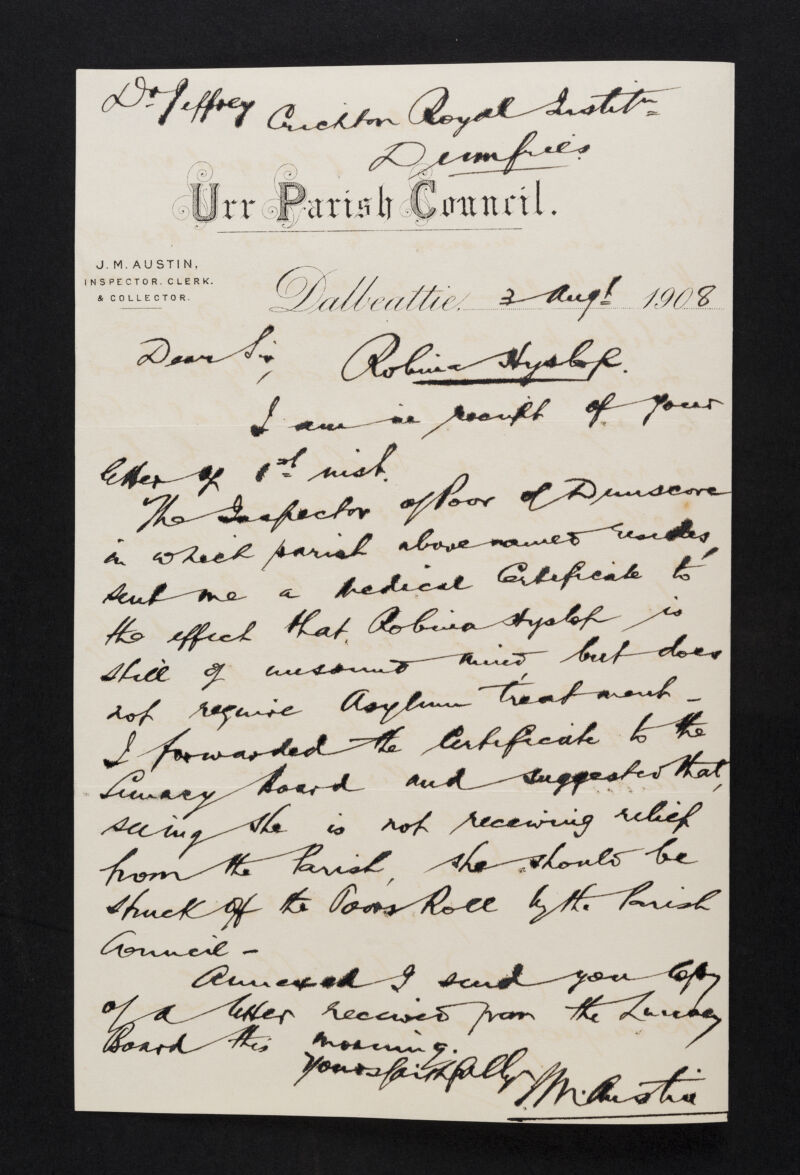 Dr. Jeffrey Crichton Royal Institn
Dumfries
Urr Parish Council.
J. M. AUSTIN,
INSPECTOR. CLERK.
& COLLECTOR.
Dalbeattie. 3 Augt. 1908
Dear Sir,
Robina Hyslop.
I am in receipt of your
letter of 1st inst.
The Inspector of Poor of Dunscore
in which parish above named resides,
sent me a Medical Certificate to
the effect that Robina Hyslop is
still of unsound mind, but does
not require Asylum treatment -
I forwarded the Certificate to the
Lunacy Board and suggested that,
seeing she is not receiving relief
from the Parish, she should be
struck off the Poors Roll by the Parish
Council -
Annexed I send you Copy
of a letter received from the Lunacy
Board this morning.
Yours faithfully
J M. Austin